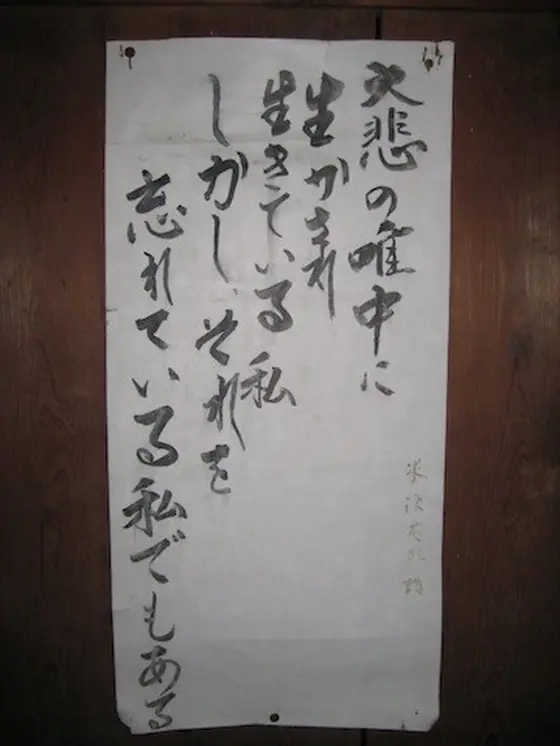 大悲の唯中に
生かされ
生きている私
しかし、それを
忘れている私でもある